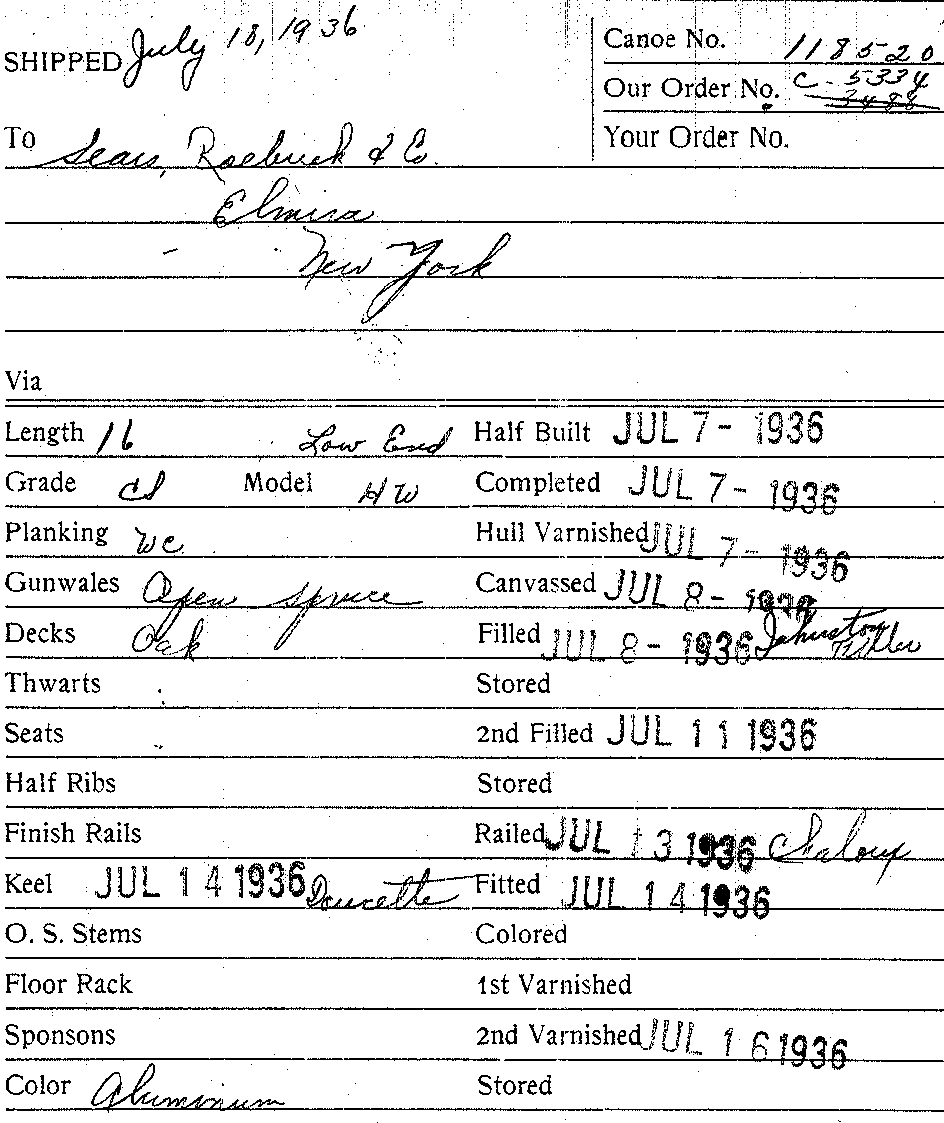 SHIPPED July 18, 1936
Canoe No. 118520
Our Order No. C-5334
3488
Your Order No.
To Sears, Roebuck & Co.
Elmira
New York
Via
Length 16 Low End Half Built JUL 7 - 1936
Grade Completed JUL 7 - 1936
Model HW
Planking WC Hull Varnished JUL 7 - 1936
Gunwales Open spruce Canvassed JUL 8 - 1936
Decks Oak Filled JUL 8 - 1936 Johnston Filler
Thwarts Stored
Seats 2nd Filled JUL 11 1936
Half Ribs Stored
Finish Rails Railed JUL 13 1936
Keel JUL 14 1936 Doucette Fitted JUL 14 1936
O. S. Stems Colored
Floor Rack 1st Varnished
Sponsons 2nd Varnished JUL 16 1936
Color Aluminum Stored